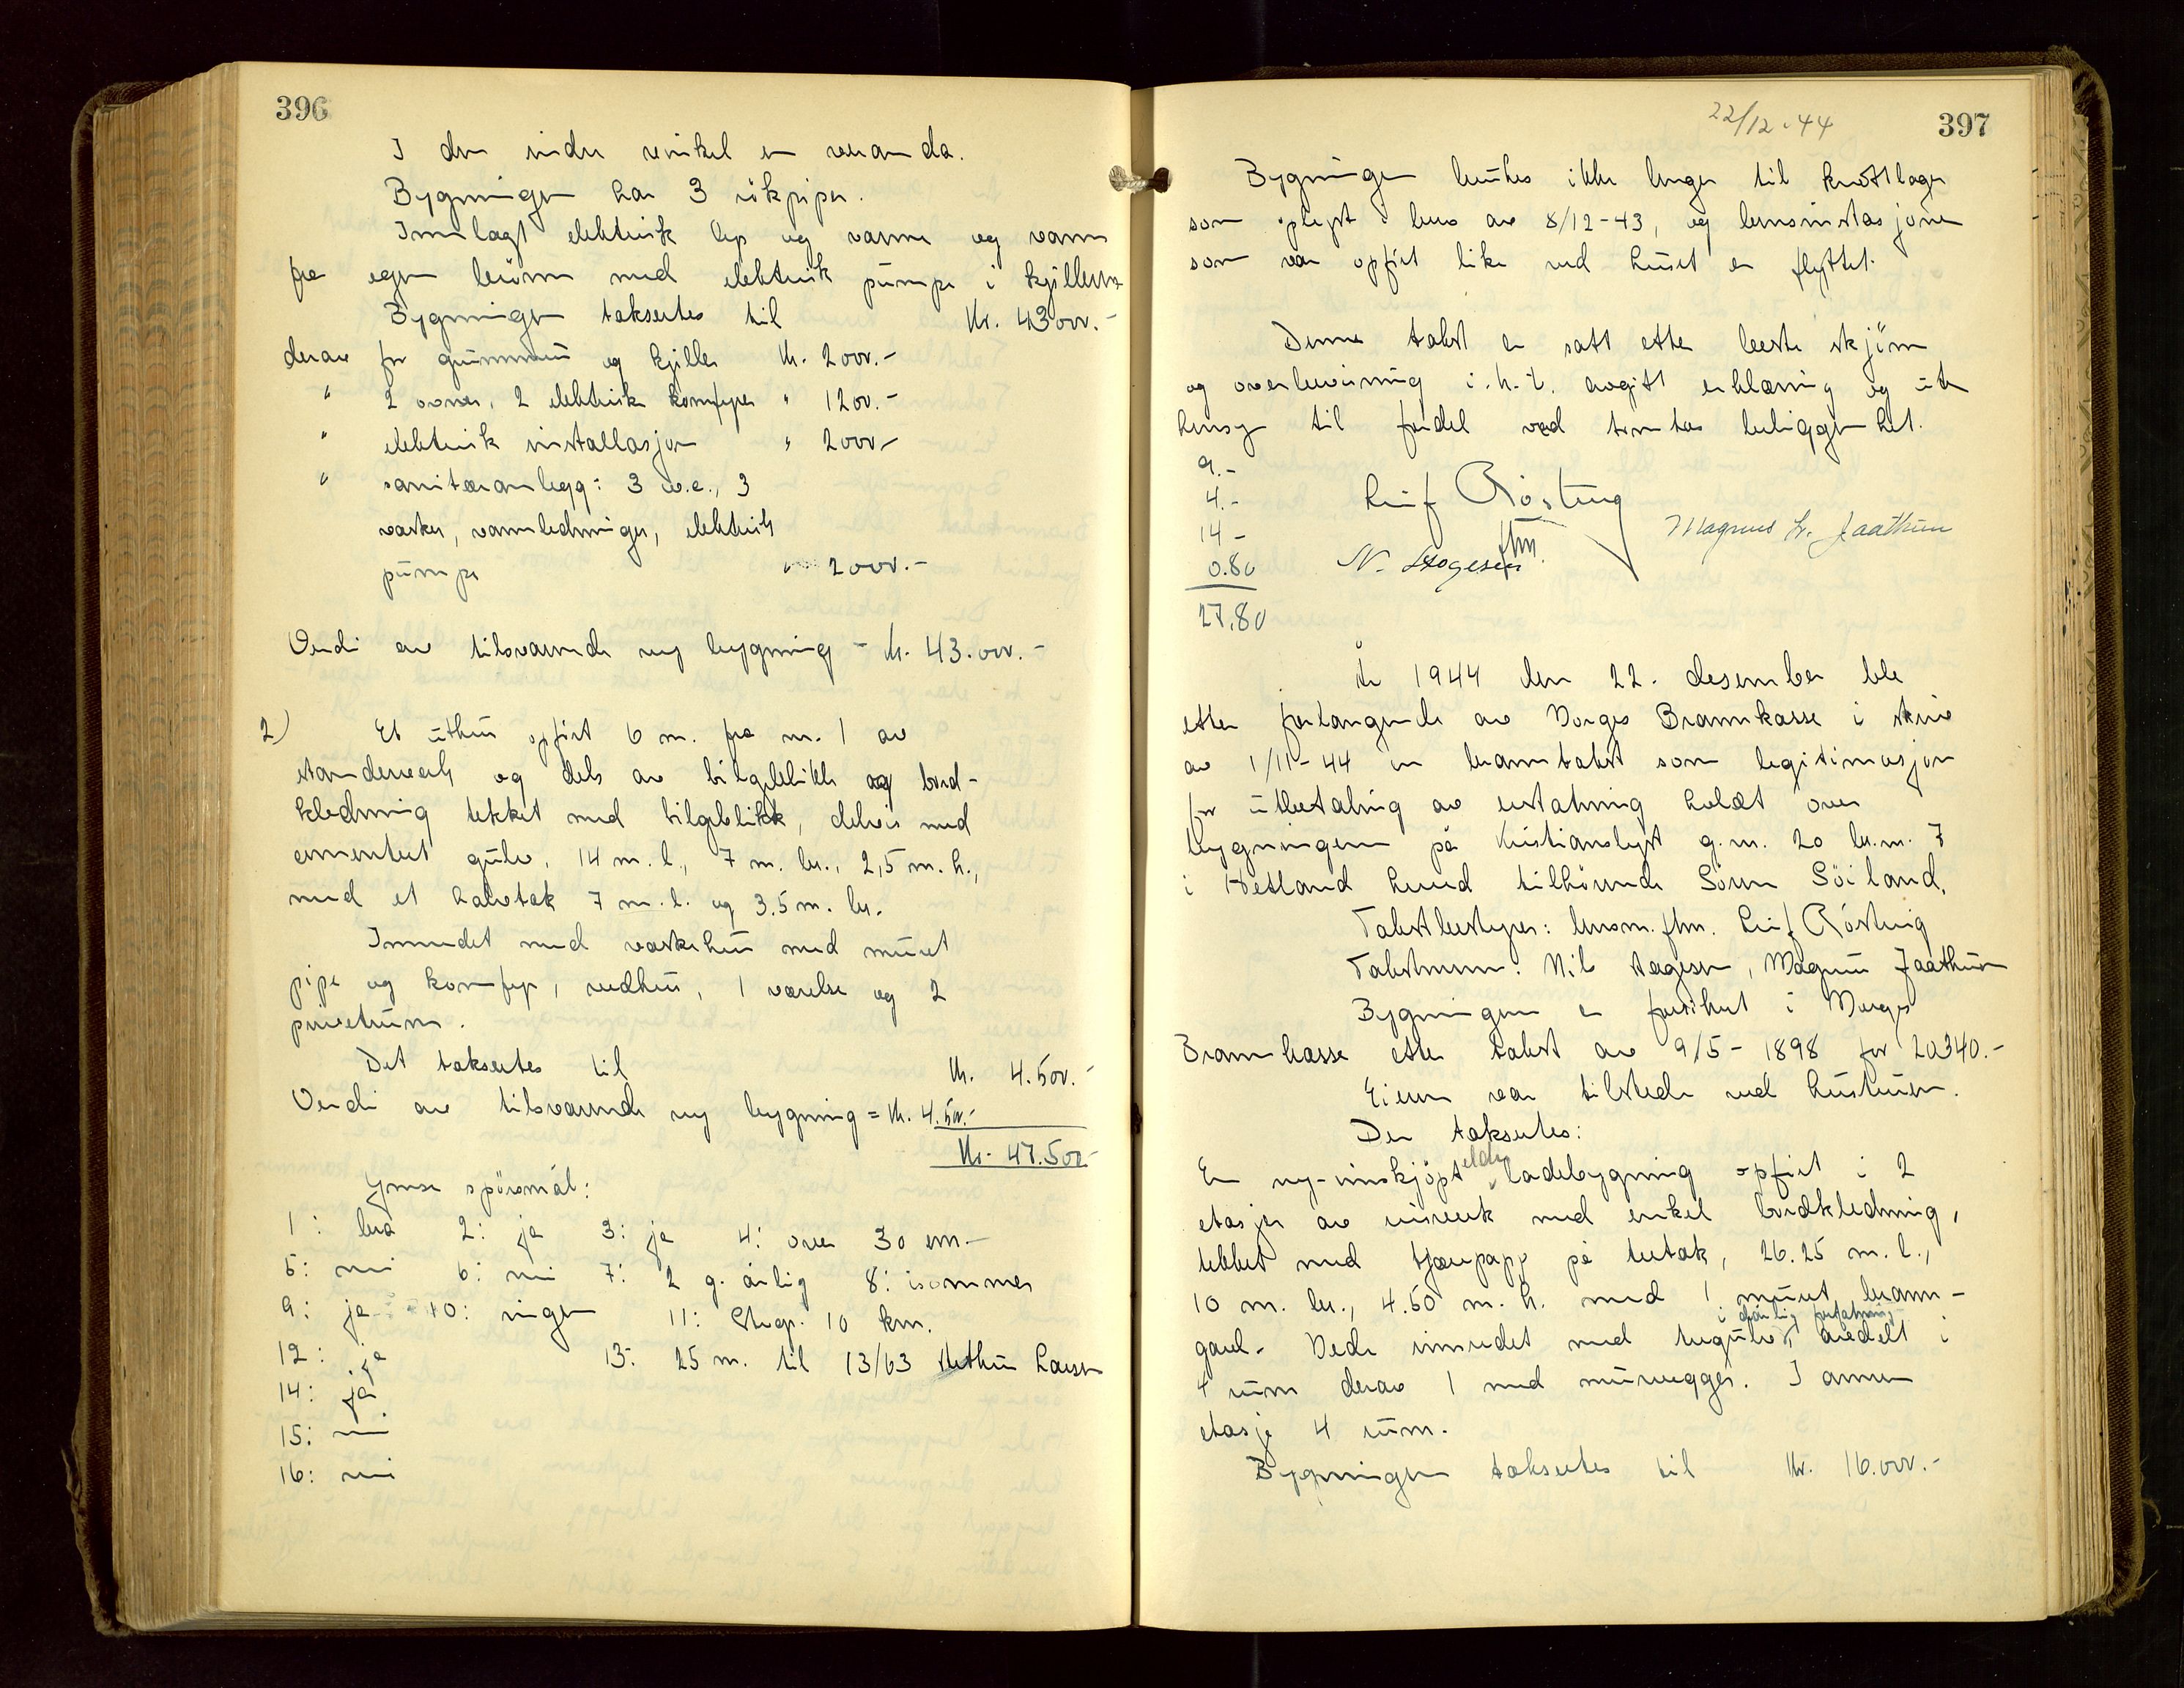 396
I den indre vinkel en veranda.
Bygningen har 3 rökpiper.
Innlagt elektrisk lys og varme og vann
fra egen brönn med elektrisk pumpe i kjelleren
Bygningen takseres til Kr. 43000.-
derav for grunnmur og kjeller Kr. 2000.-
" 2 ovner, 2 elektriske komfyrer " 1200.-
" elektrisk installasjon " 2000.-
" sanitæranlegg: 3 w.c., 3
vasker, vannledninger, elektrisk
pumpe " 2000.-
Verdi av tilsvarende ny bygning = Kr. 43.000.-
2) Et uthus opfört 6 m. fra nr. 1 av
standerverk og dels av bölgeblikk og bord-
kledning tekket med bölgeblikk, delvis med
cementert gulv, 14 m. l., 7 m. br., 2,5 m. h.,
med et halvtak 7 m. l. og 3.5 m. br.
Innredet med vaskehus med muret
pipe og komfyr, vedhus, 1 værelse og 2
privetrum.
Det takseres til Kr. 4.500.-
Verdi av tilsvarende ny bygning = Kr. 4.500.-
Kr. 47.500.-
Ymse spörsmål:
1: bra 2: ja 3: ja 4: over 30 cm.-
5: nei 6: nei 7: 2 g. årlig 8: isommer
9: ja 10: ingen 11: Stvgr. 10 km.
12: ja 13: 25 m. til 13/63 Arthur Larsen
14: ja
15: nei
16: nei
22/12-44 397
Bygningen brukes ikke lenger til kruttlager
som oplyst i brev av 8/12-43, og brennstasjonen
som var opfört like ved huset er flyttet.
Denne takst er satt etter beste skjönn
og overbevisning i.h.t. avgitt erklæring og uten
hensyn til fordel ved tomtas beliggenhet.
9.-
4.-
14-
0.80
27,80
Leif Röstvig
fhm.
Magnus L. Jaathun
N. Stogesen
År 1944 den 22. desember ble
etter forlangende av Norges Brannkasse i skriv
av 1/11-44 en branntakst som legitimasjon
for utbetaling av erstatning holdt over
bygningen på Kristianslyst g.nr. 20 br.nr. 7
i Hetland herred tilhörende Sören Söiland.
Takstbestyrer: lensm. fhm. Leif Röstvig
Takstmenn: Nils Aagesen, Magnus Jaathun
Bygningen er forsikret i Norges
Brannkasse etter takst av 9/5-1898 for 20340.-
Eieren var tilstede ved hustruen.
Der takseres:
En ny-innkjöpt eldre ladebygning opfört i 2
etasjer av reisverk med enkel bordkledning,
tekket med tjærepapp på tretak, 26.25 m. l.,
10 m. br., 4.50 m. h. med 1 muret brann-
i dårlig forfatning
gavl. Nede innredet med tregulv, avdelt i
4 rum derav 1 med murvegger. I annen
etasje 4 rum.
Bygningen takseres til Kr. 16.000.-